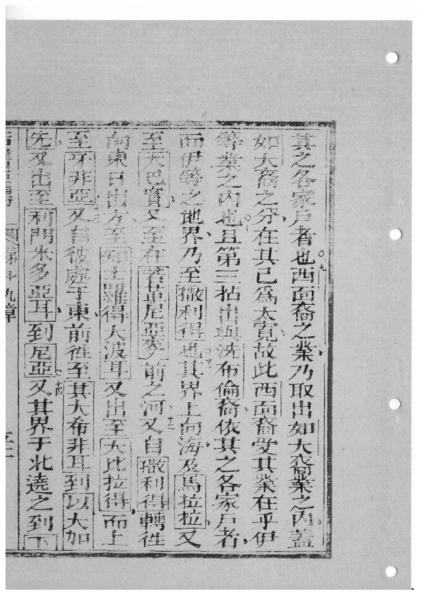 其之各家戶者也西面裔之業乃取出如大裔業之內蓋
如大裔之分在其已為太寬故此西面裔受其業在乎伊
等業之內也且第三拈出與洗布倫裔依其之各家戶者
而伊等之地界乃至撒利得也其界上向海及馬拉拉又
至大巴實又至在若革尼亞麥前之河又自撒利得轉徃
向東日出方至知士羅得大波耳又出至大比拉得而上
至牙非亞又自彼處于東前徃至其大布非耳到以大加
先又出至利門米多亞耳到尼亞又其界于北遶之到